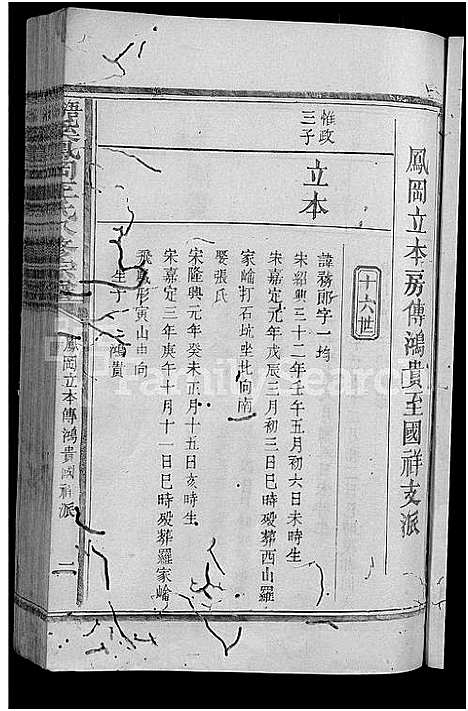 鳳岡立本房傳鴻貴至國祥支派
十六世
惟政
三子
立本
諱務郎字一均
宋紹興三十二年壬午五月初六日未時生
宋嘉定元年戊辰三月初三日巳時殁葬西山羅
家崙打石坑坐北向南
娶張氏
宋隆興元年癸未正月十五日亥時生
宋嘉定三年庚午十月十一日巳時殁葬羅家崙
飛鳳形寅山申向
生子一鴻貴
鳳岡立本傳鴻貴國祥派
二
FamilySearch